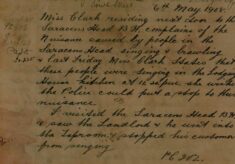 6th May 1902.
Miss Clark residing next door to the
Saracens Head P.H. complains of the
Nuisance caused by people in the
Saracens Head singing & brawling
& last Friday Miss Clark States that
there people were singing in the Lodging
House Kitchen & to
the Police could put a stop to the
nuisance.
I visited the Saracens Head P.H.
& saw the Landlord & went into
the Taproom & stopped his customers
from singing
P.C. 202.